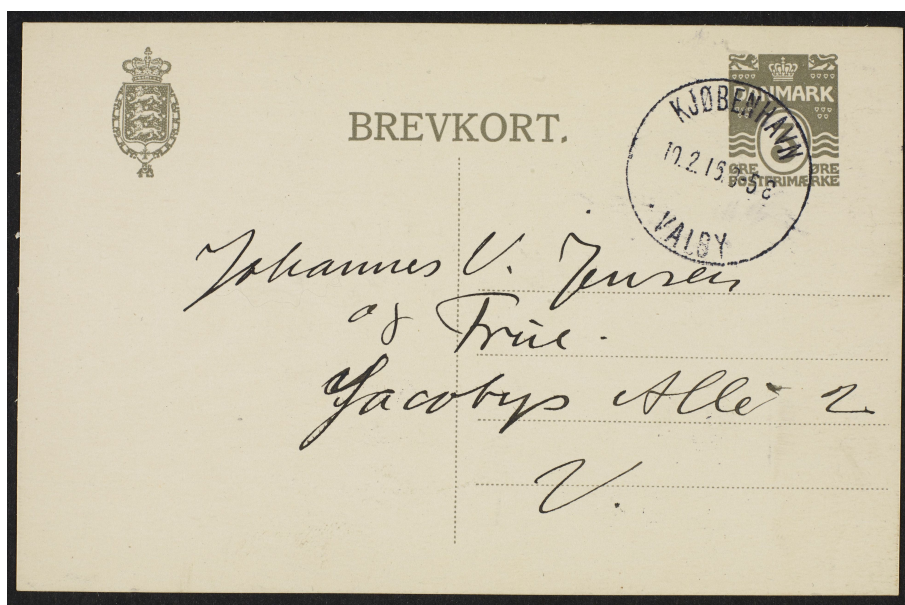 BREVKORT.
DANMARK
5
ØRE ØRE
POSTFRIMÆRKE
KJØBENHAVN
VALBY
Johannes V. Jensen
og Frue.
Jacobys Allé 2
V.